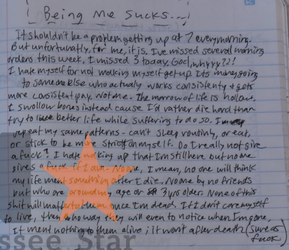 Being Me Sucks...!
It shouldn't be a problem getting up at 7 every morning.
But unfortunately, for me, it is. I've missed several morning
orders this week. I missed 3 today. God, why??!
I hate myself for not making myself get up. It's money going
to someone else who actually works consistently & gets
more consistent pay. Not me. The marrow of life is hollow.
I swallow bones instead cause I'd rather die hard than
try to live better life while suffering to do so. I'm
repeat my same patterns - can't sleep routinely, or eat,
or stick to be more strict on myself. Do I really not give
a fuck? I hate waking up that I'm still here but no one
gives a fuck if I am. None, I mean, no one will think
my life meant something after I die. None by no friends
but who are around my age or years older. None of this
shit will matter to them once I'm dead. If I don't care myself
to live, then who way they will even to notice when I'm gone,
It meant nothing to them alive it won't after death. (surely
fuck)
sseeksfar